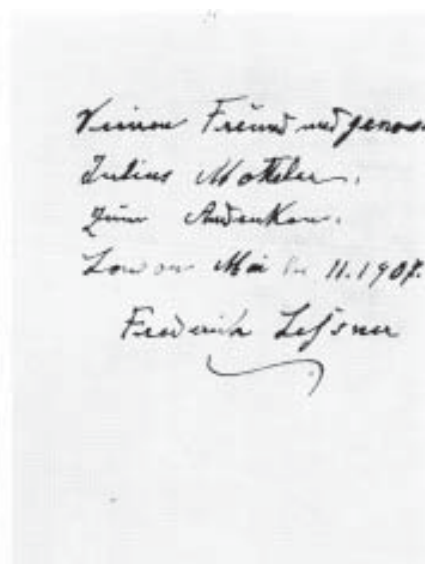 Meinem Freund und genoss
Julius Motteler.
zum Andenken.
London Mai 11.1907.
Frederick Lessner